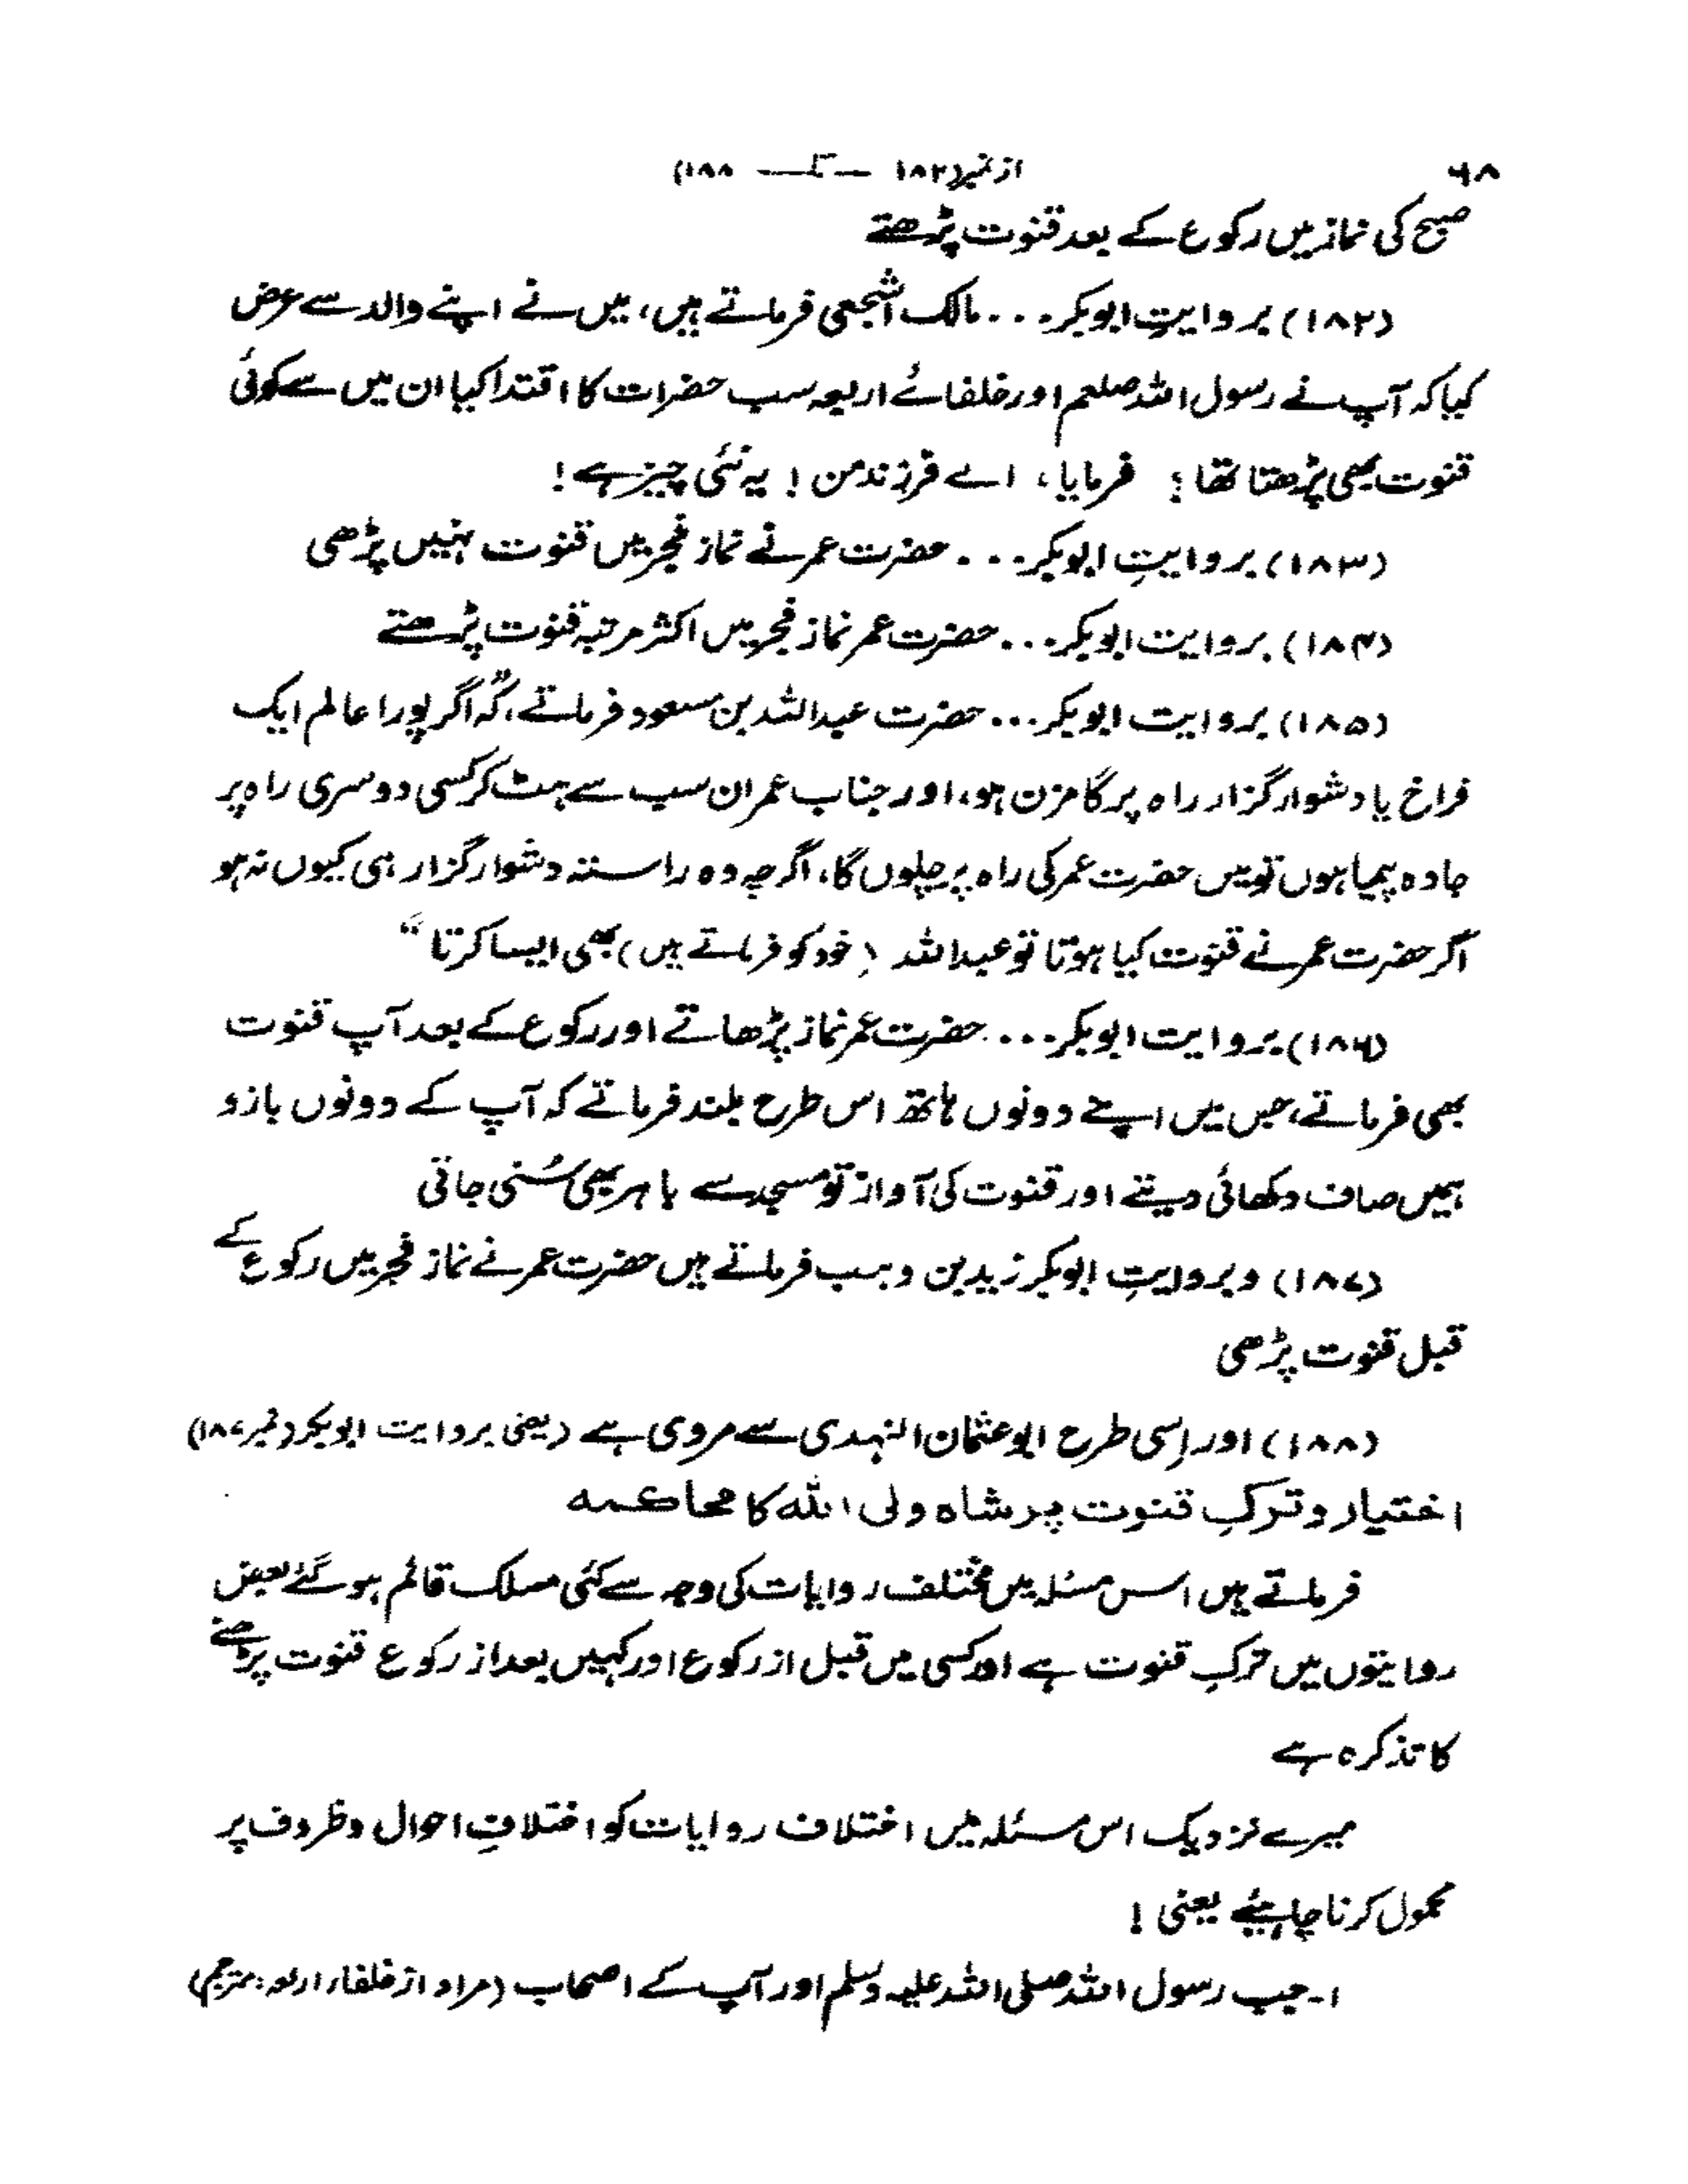 ۶۸
از نمبر(۱۸۲ — تا — ۱۸۸)
صبح کی نماز میں رکوع کے بعد قنوت پڑھتے
(۱۸۲) بروایتِ ابوبکر... مالک اشجعی فرماتے ہیں، میں نے اپنے والد سے عرض
کیا کہ آپ نے رسول اللہ صلعم اور خلفائے اربعہ سب حضرات کا اقتدا کیا ان میں سے کوئی
قنوت بھی پڑھتا تھا؟ فرمایا، اے فرزند من! یہ نئی چیز ہے!
(۱۸۳) بروایتِ ابوبکر... حضرت عمر نے نماز فجر میں قنوت نہیں پڑھی
(۱۸۴) بروایت ابوبکر... حضرت عمر نماز فجر میں اکثر مرتبہ قنوت پڑھتے
(۱۸۵) بروایت ابوبکر... حضرت عبداللہ بن مسعود فرماتے، کہ "اگر پورا عالم ایک
فراخ یا دشوار گزار راہ پر گامزن ہو، اور جناب عمر ان سب سے ہٹ کر کسی دوسری راہ پر
جادہ پیما ہوں تو میں حضرت عمر کی راہ پر چلوں گا، اگرچہ وہ راستہ دشوار گزار ہی کیوں نہ ہو
اگر حضرت عمر نے قنوت کیا ہوتا تو عبداللہ (خود کو فرماتے ہیں) بھی ایسا کرتا"
(۱۸۶) بروایت ابوبکر... حضرت عمر نماز پڑھاتے اور رکوع کے بعد آپ قنوت
بھی فرماتے، جس میں اپنے دونوں ہاتھ اس طرح بلند فرماتے کہ آپ کے دونوں بازو
ہمیں صاف دکھائی دیتے اور قنوت کی آواز تو مسجد سے باہر بھی سُنی جاتی
(۱۸۷) و بروایتِ ابوبکر زید بن وہب فرماتے ہیں حضرت عمر نے نماز فجر میں رکوع کے
قبل قنوت پڑھی
(۱۸۸) اور اِسی طرح ابو عثمان النہدی سے مروی ہے (یعنی بروایت ابوبکر (نمبر ۱۸۷)
اختیار و ترکِ قنوت پر شاہ ولی اللہ کا محاکمہ
فرماتے ہیں اس مسئلہ میں مختلف روایات کی وجہ سے کئی مسلک قائم ہو گئے بعض
روایتوں میں ترکِ قنوت ہے اور کسی میں قبل از رکوع اور کہیں بعد از رکوع قنوت پڑھنے
کا تذکرہ ہے
میرے نزدیک اس مسئلہ میں اختلاف روایات کو اختلافِ احوال و ظروف پر
محمول کرنا چاہیئے یعنی!
۱- جب رسول اللہ صلی اللہ علیہ وسلم اور آپ کے اصحاب (مراد از خلفاء اربعہ: مترجم)